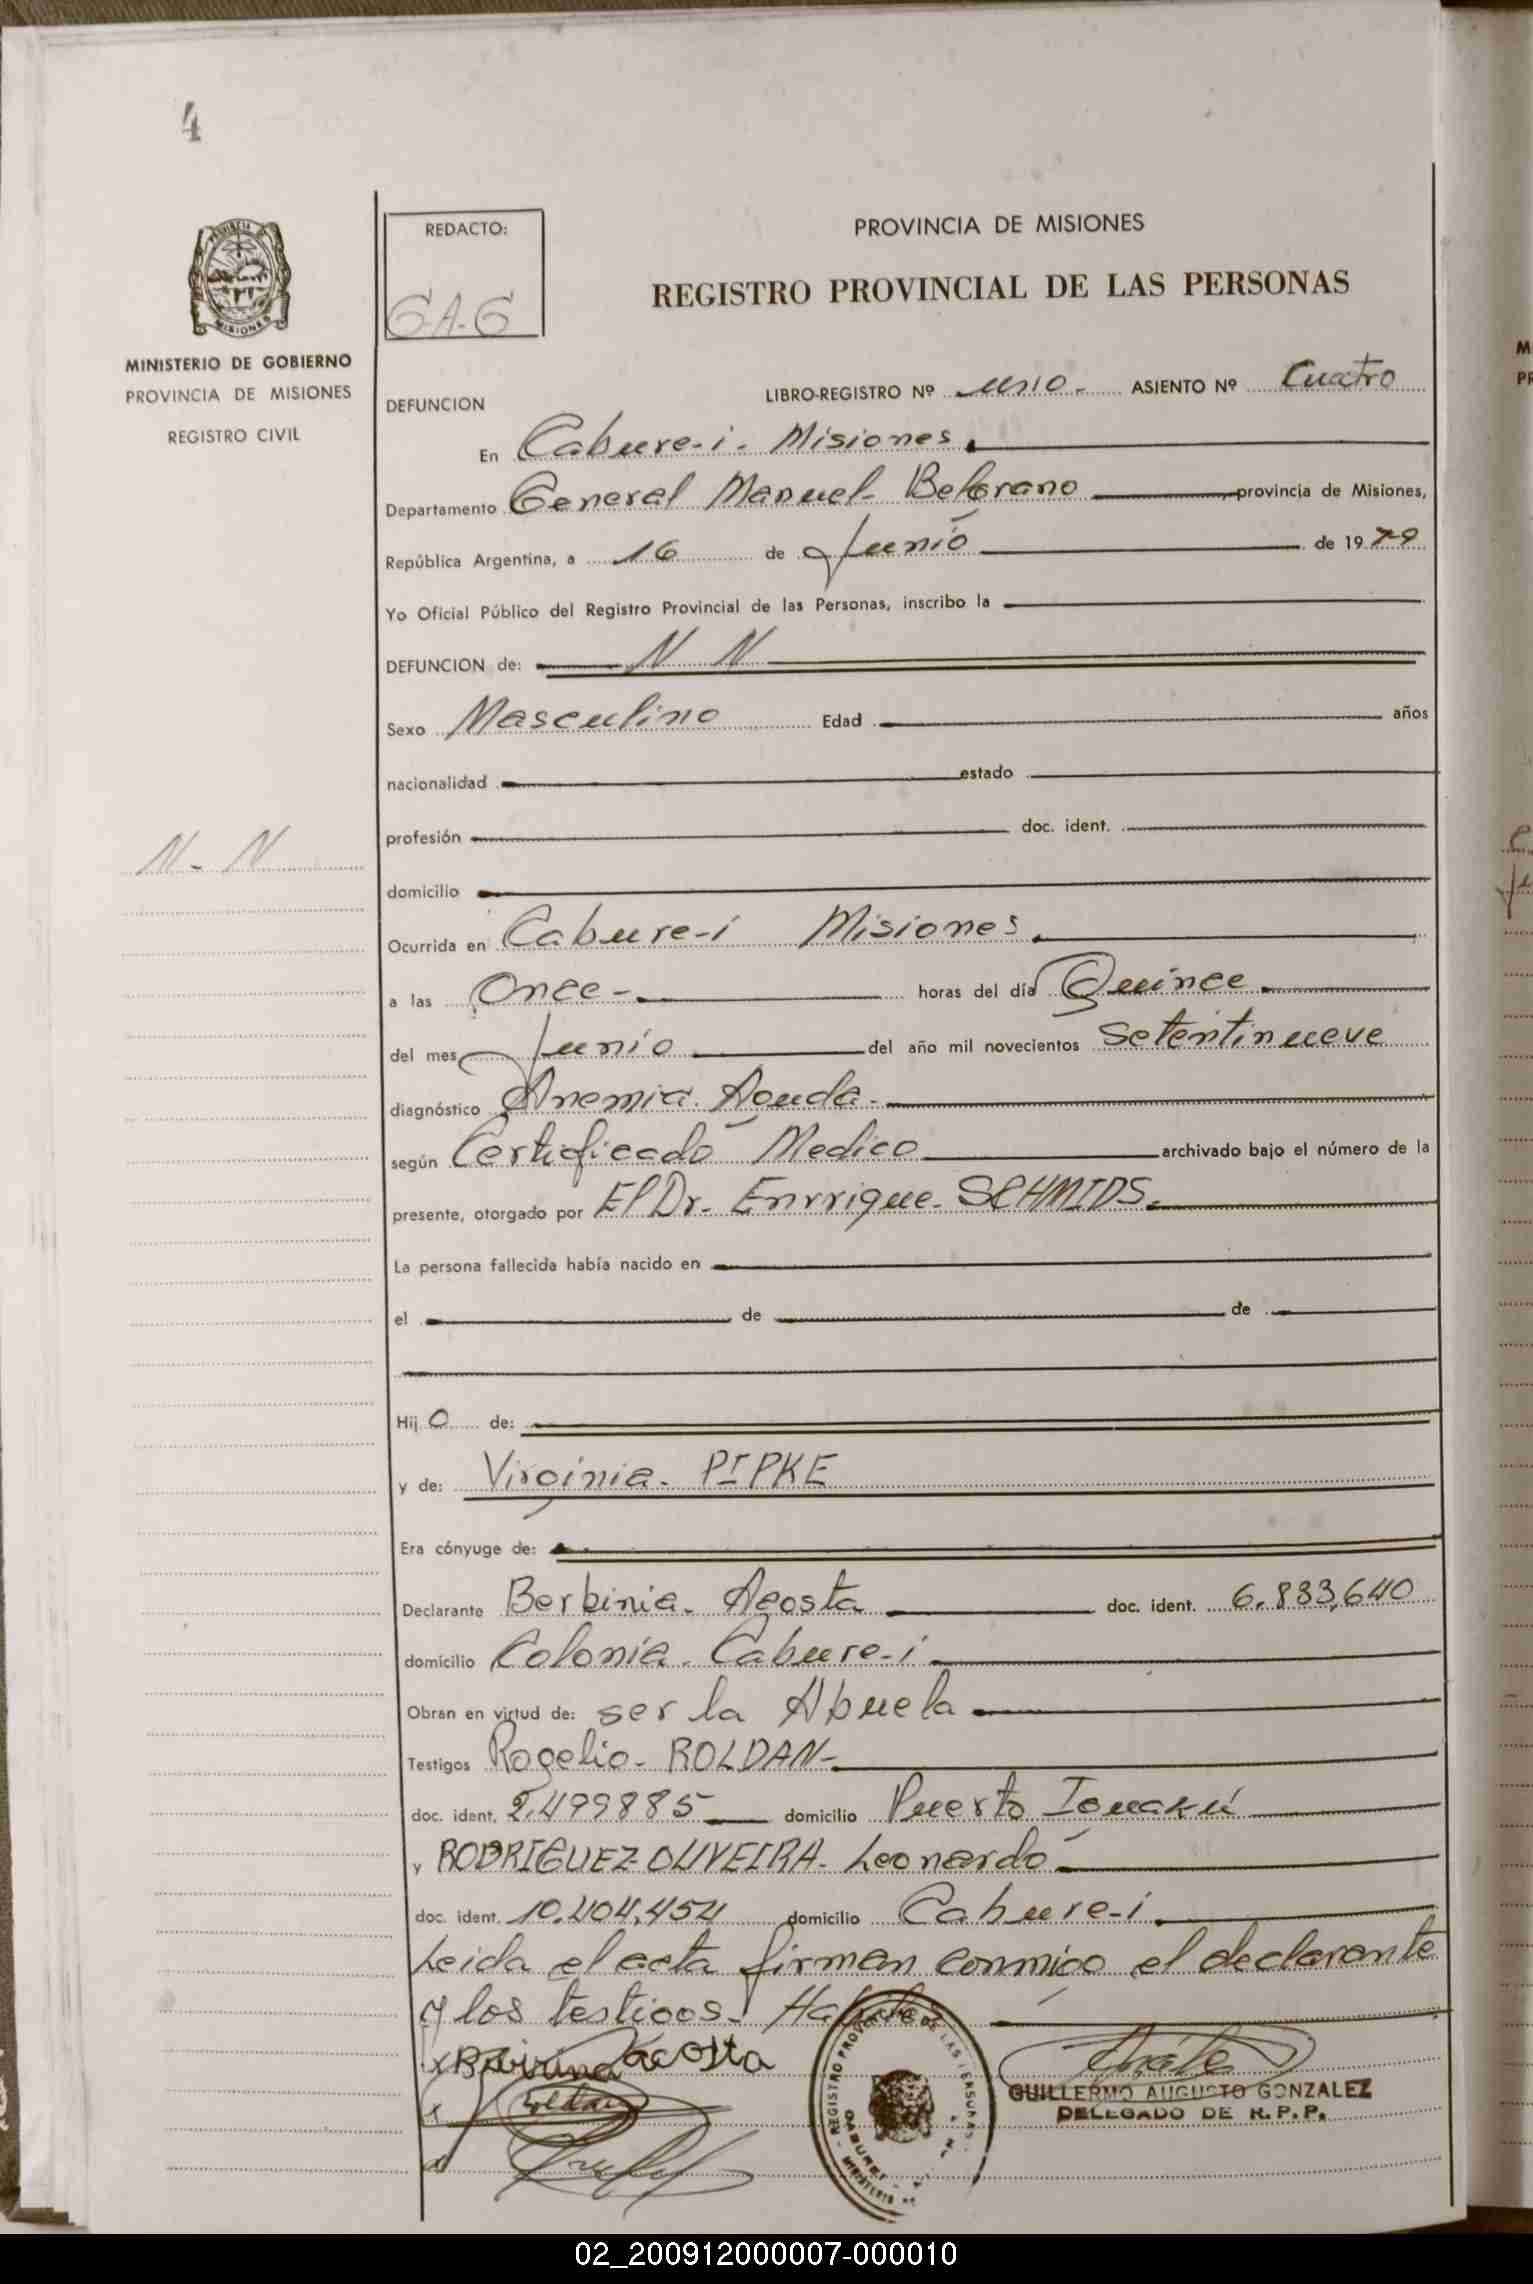 4
PROVINCIA DE MISIONES
REGISTRO PROVINCIAL DE LAS PERSONAS
REDACTO:
G-A-G
PROVINCIA DE
MISIONES
MINISTERIO DE GOBIERNO
PROVINCIA DE MISIONES
REGISTRO CIVIL
DEFUNCION
LIBRO-REGISTRO Nº uno.- ASIENTO Nº Cuatro
En Cabure-i. Misiones.
Departamento General Manuel- Belgrano provincia de Misiones,
República Argentina, a 16 de Junio de 19 79
Yo Oficial Público del Registro Provincial de las Personas, inscribo la
DEFUNCION de: N N
Sexo Masculino Edad años
nacionalidad estado
profesión doc. ident.
N- N
domicilio
Ocurrida en Cabure-i Misiones.
a las Once- horas del día Quince.
del mes Junio del año mil novecientos Setentinueve
diagnóstico Anemia. Aguda.-
según Certificado Medico archivado bajo el número de la
presente, otorgado por El Dr. Enrrique. SCHMIDS.
La persona fallecida había nacido en
el de de
Hij o de:
y de: Virginia. PIPKE
Era cónyuge de:
Declarante Berbinia. Acosta doc. ident. 6.883,640
domicilio Colonia. Cabure-i
Obran en virtud de: ser la Abuela
Testigos Rogelio- ROLDAN-
doc. ident. 2.499885 domicilio Puerto Iguazú
y RODRIGUEZ-OLIVEIRA- Leonardo
doc. ident. 10.404.454 domicilio Cabure-i.
Leida el acta firman conmigo el declarante
y los testigos.
x Acosta
x Roldan
x
REGISTRO PROVINCIAL DE LAS PERSONAS
CABUREI
MINISTERIO
GUILLERMO AUGUSTO GONZALEZ
DELEGADO DE R.P.P.
02_200912000007-000010